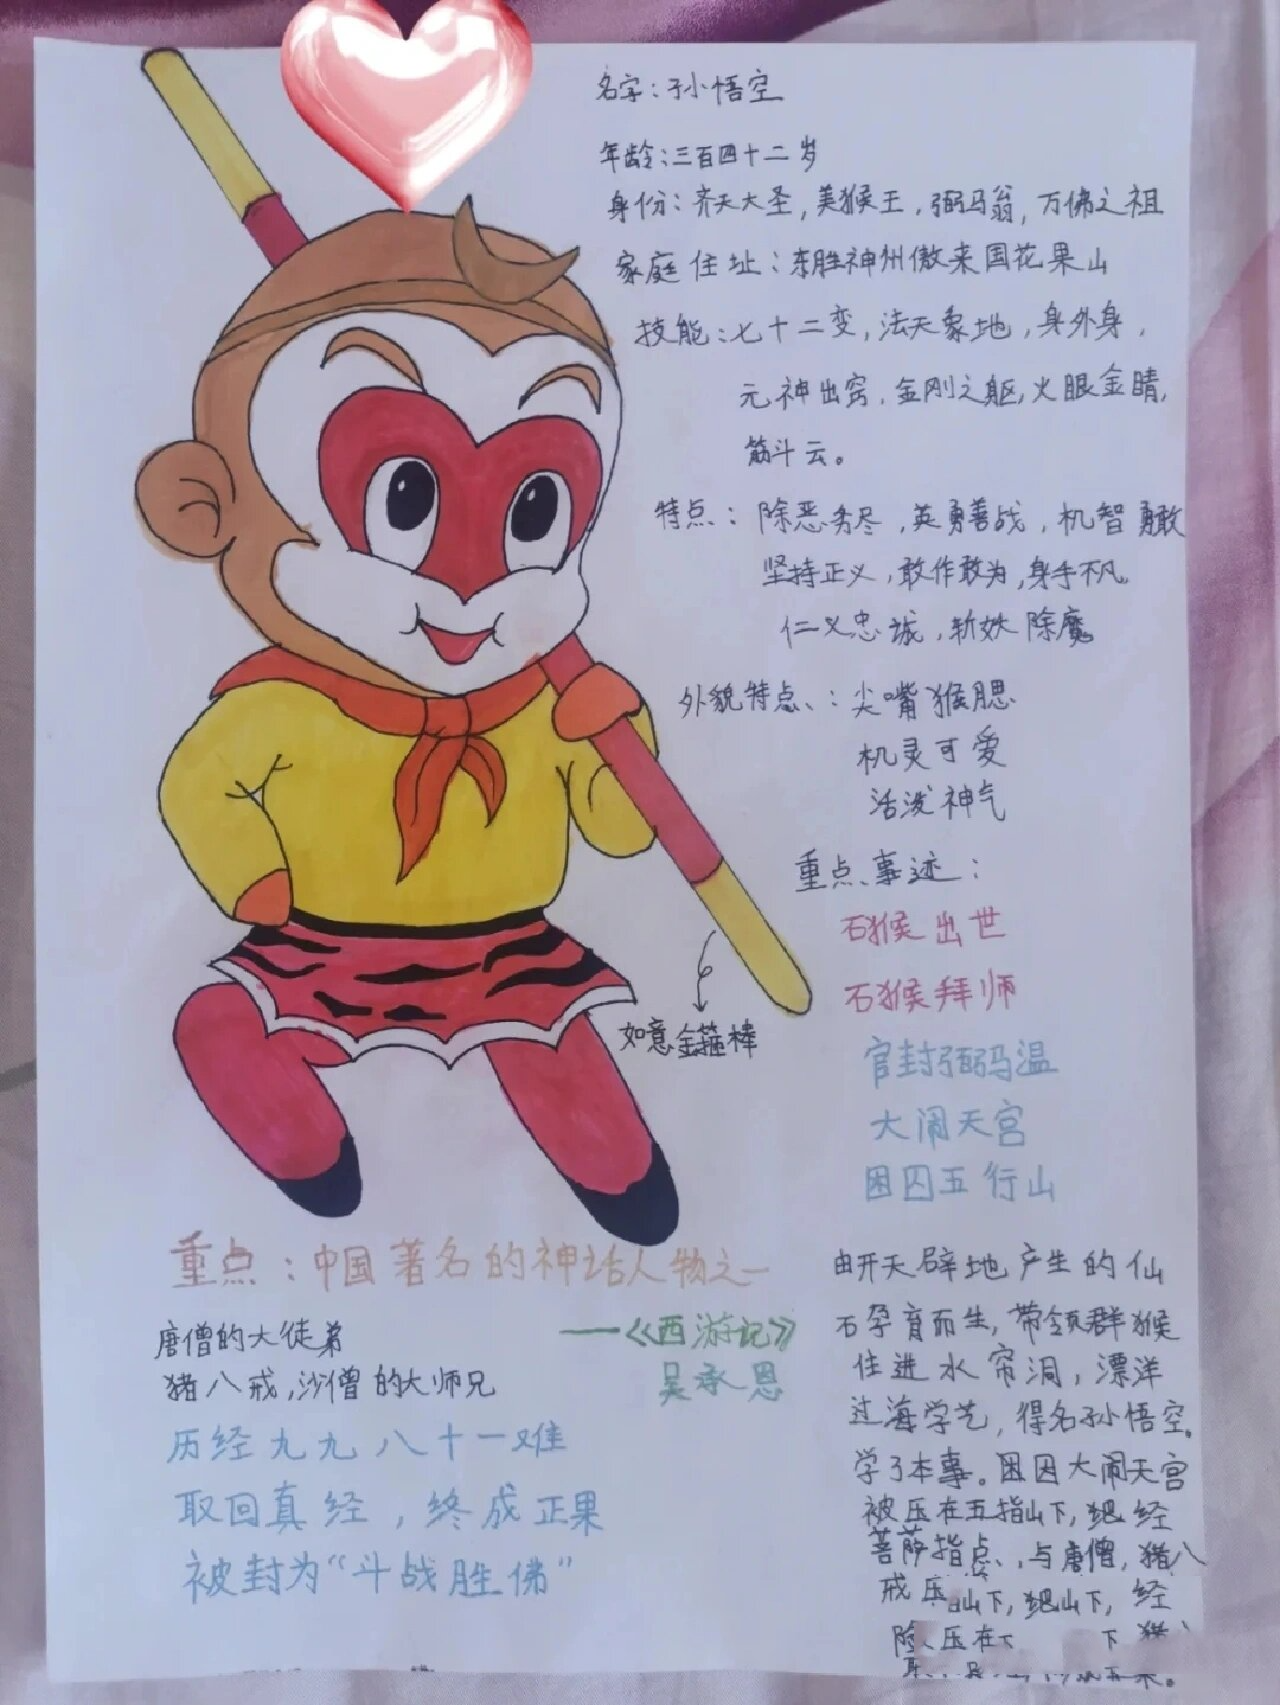 名字：孙悟空
年龄：三百四十二岁
身份：齐天大圣，美猴王，弼马翁，万佛之祖
家庭住址：东胜神州傲来国花果山
技能：七十二变，法天象地，身外身，
元神出窍，金刚之躯，火眼金睛，
筋斗云。
特点：除恶务尽，英勇善战，机智勇敢
坚持正义，敢作敢为，身手不凡。
仁义忠诚，斩妖除魔
外貌特点：尖嘴猴腮
机灵可爱
活泼神气
重点事迹：
石猴出世
石猴拜师
官封弼马温
大闹天宫
困囚五行山
如意金箍棒
重点：中国著名的神话人物之一
——《西游记》
吴承恩
唐僧的大徒弟
猪八戒，沙僧的大师兄
历经九九八十一难
取回真经，终成正果
被封为“斗战胜佛”
由开天辟地产生的仙
石孕育而生，带领群猴
住进水帘洞，漂洋
过海学艺，得名孙悟空。
学了本事。因大闹天宫
被压在五指山下，经
菩萨指点，与唐僧，猪八
戒压山下，山下，经
压在下